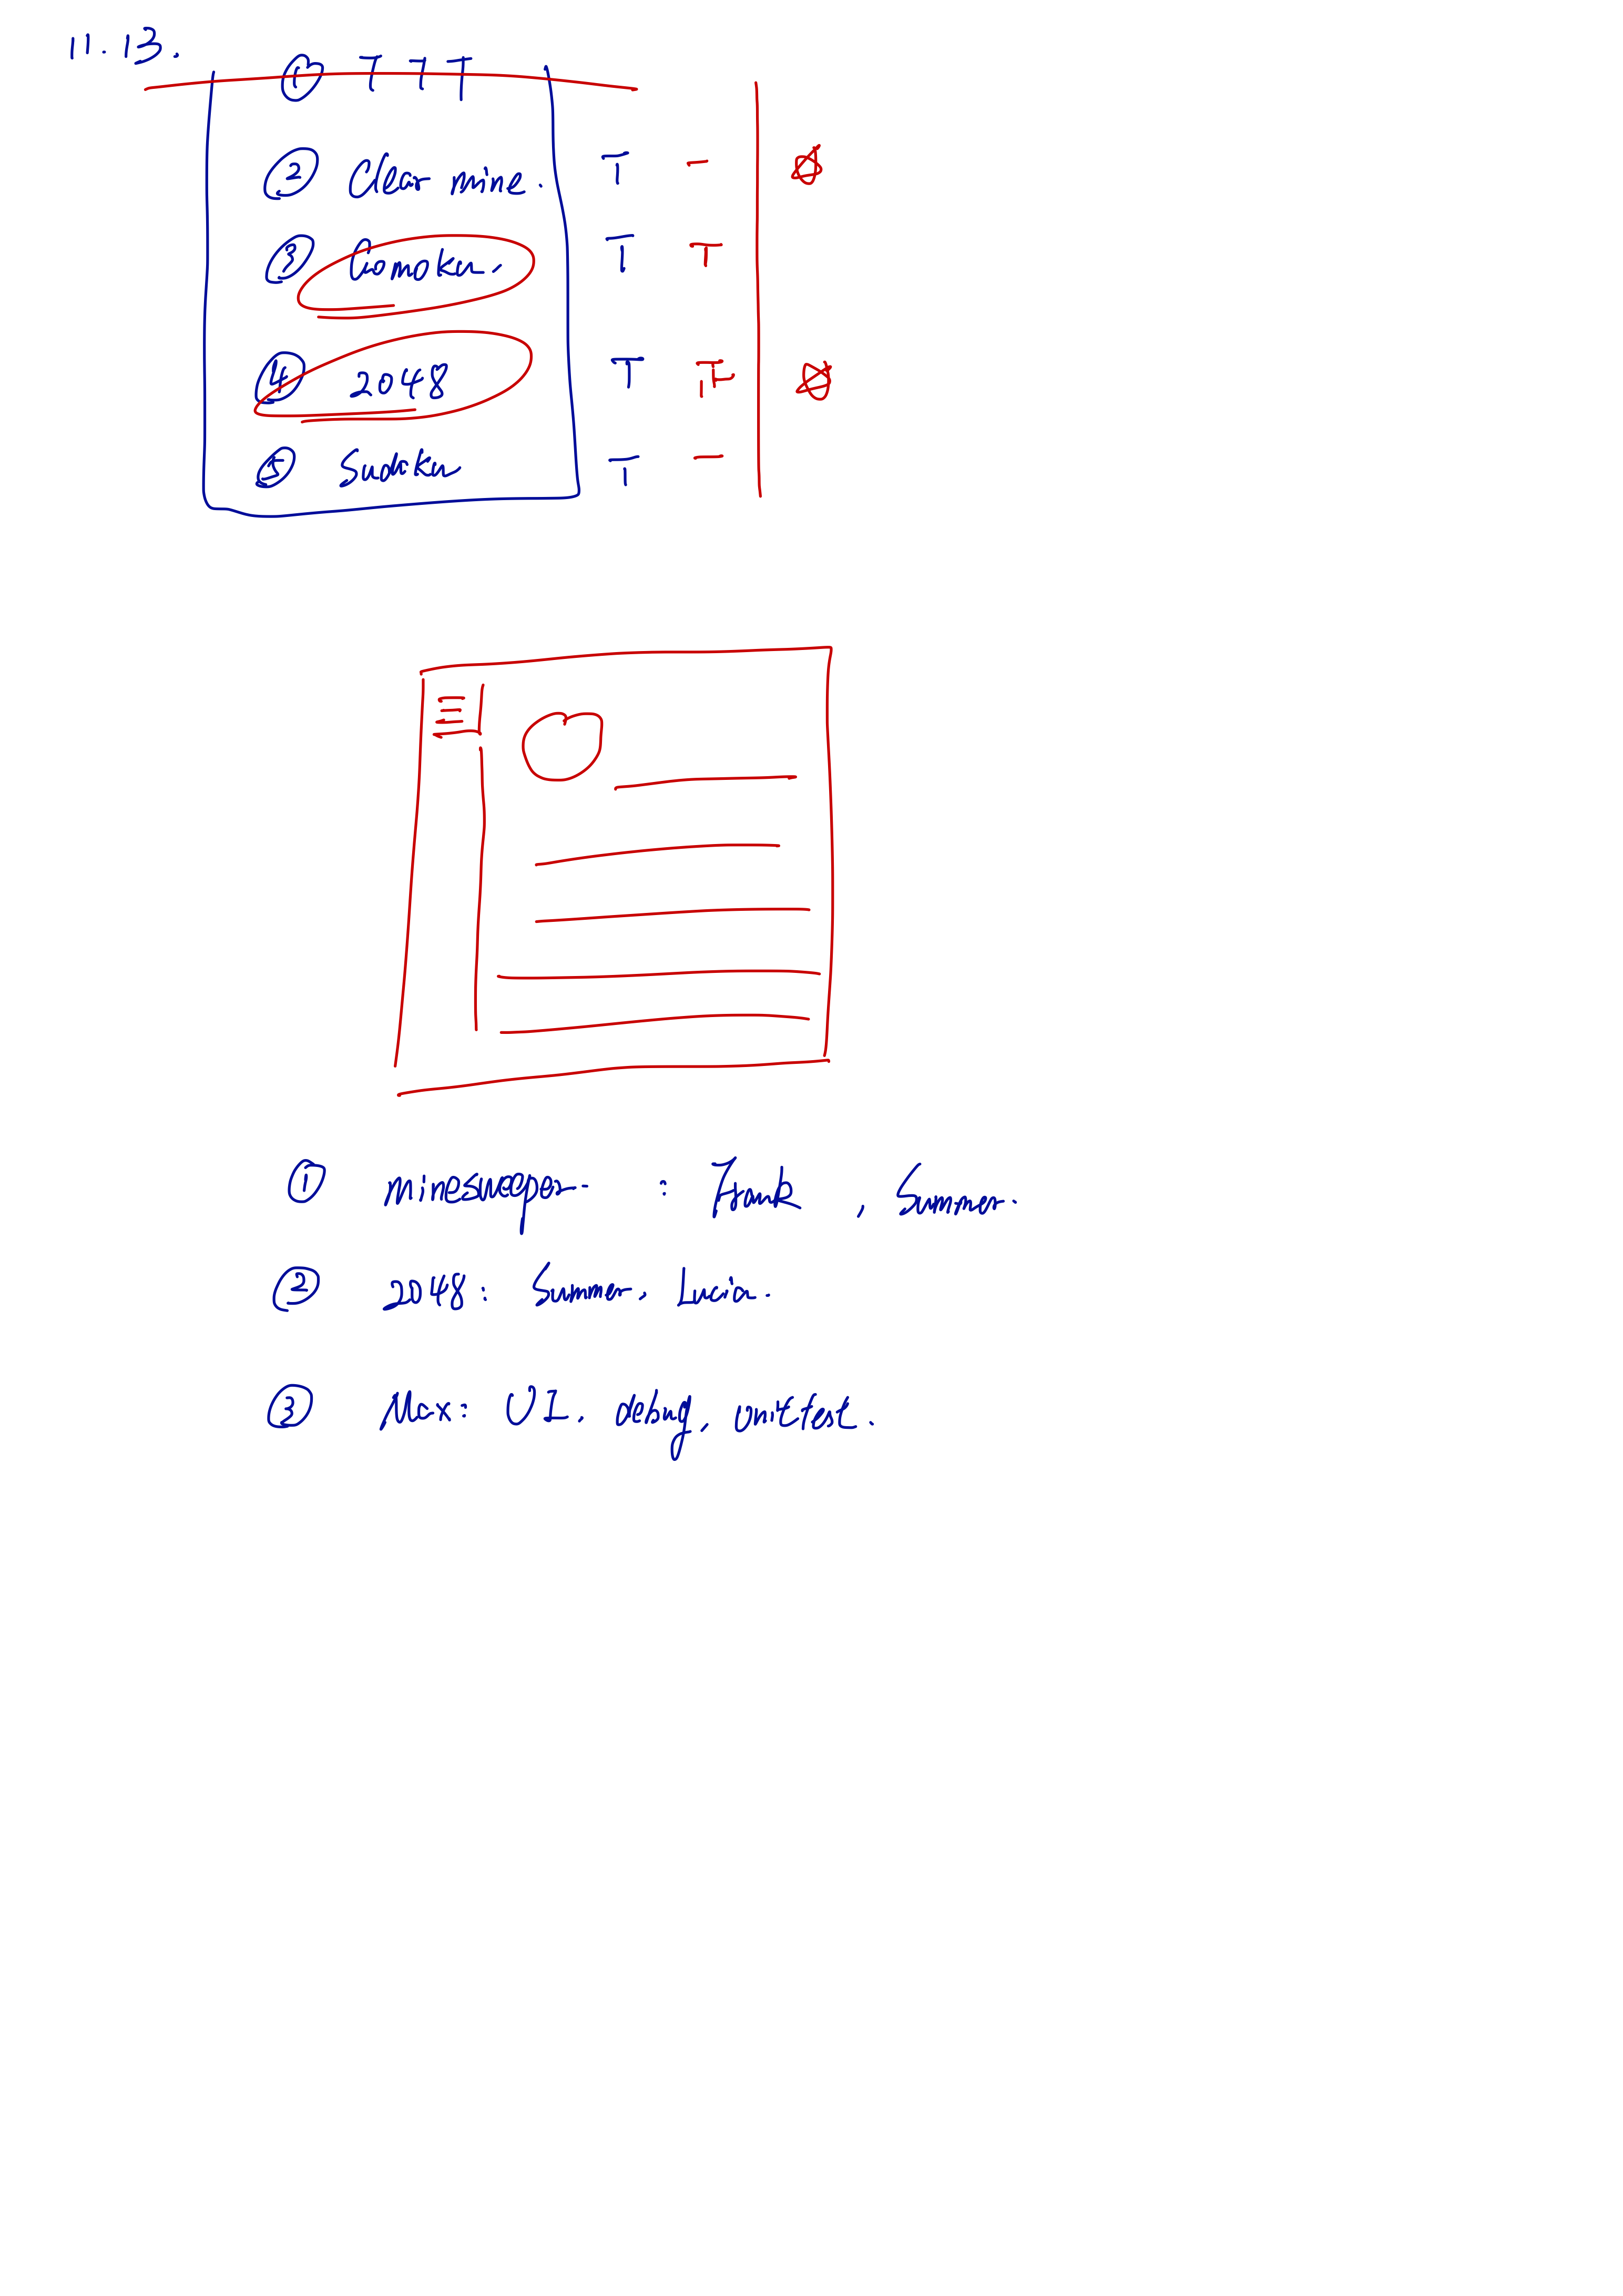 11.13.
① T T T
② Clear mine. T -
③ Gomoku. T T
④ 2048 T
⑤ Sudoku T -
① minesweeper : Frank , Summer.
② 2048: Summer, Lucia.
③ Max: UI, debug, unittest.